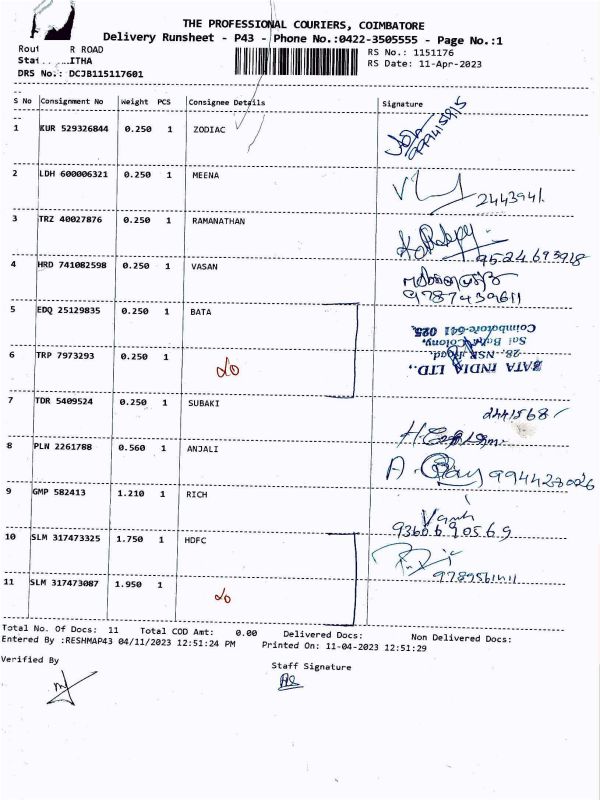 THE PROFESSIONAL COURIERS, COIMBATORE
Delivery Runsheet - P43 - Phone No.:0422-3505555 - Page No.:1
R ROAD
RS No.: 1151176
ITHA
RS Date: 11-Apr-2023
DRS No.: DCJB115117601
S No Consignment No Weight PCS Consignee Details Signature
1 KUR 529326844 0.250 1 ZODIAC
2 LDH 600006321 0.250 1 MEENA 2443941.
3 TRZ 40027876 0.250 1 RAMANATHAN
9524693918
4 HRD 741082598 0.250 1 VASAN
9787439611
5 EDQ 25129835 0.250 1 BATA
BATA INDIA LTD.,
28, NSR Road,
Sai Baba Colony,
Coimbatore-641 025.
6 TRP 7973293 0.250 1 do
7 TDR 5409524 0.250 1 SUBAKI 2441568
8 PLN 2261788 0.560 1 ANJALI 994428026
9 GMP 582413 1.210 1 RICH
9360690569
10 SLM 317473325 1.750 1 HDFC
11 SLM 317473087 1.950 1 do
Total No. Of Docs: 11 Total COD Amt: 0.00 Delivered Docs: Non Delivered Docs:
Entered By :RESHMAP43 04/11/2023 12:51:24 PM Printed On: 11-04-2023 12:51:29
Verified By
Staff Signature